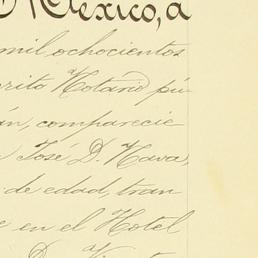 México, a
mil ochocientos
crito Notario pú-
án, comparecie
José D. Nava,
de edad, tran
e en el Hotel
D.